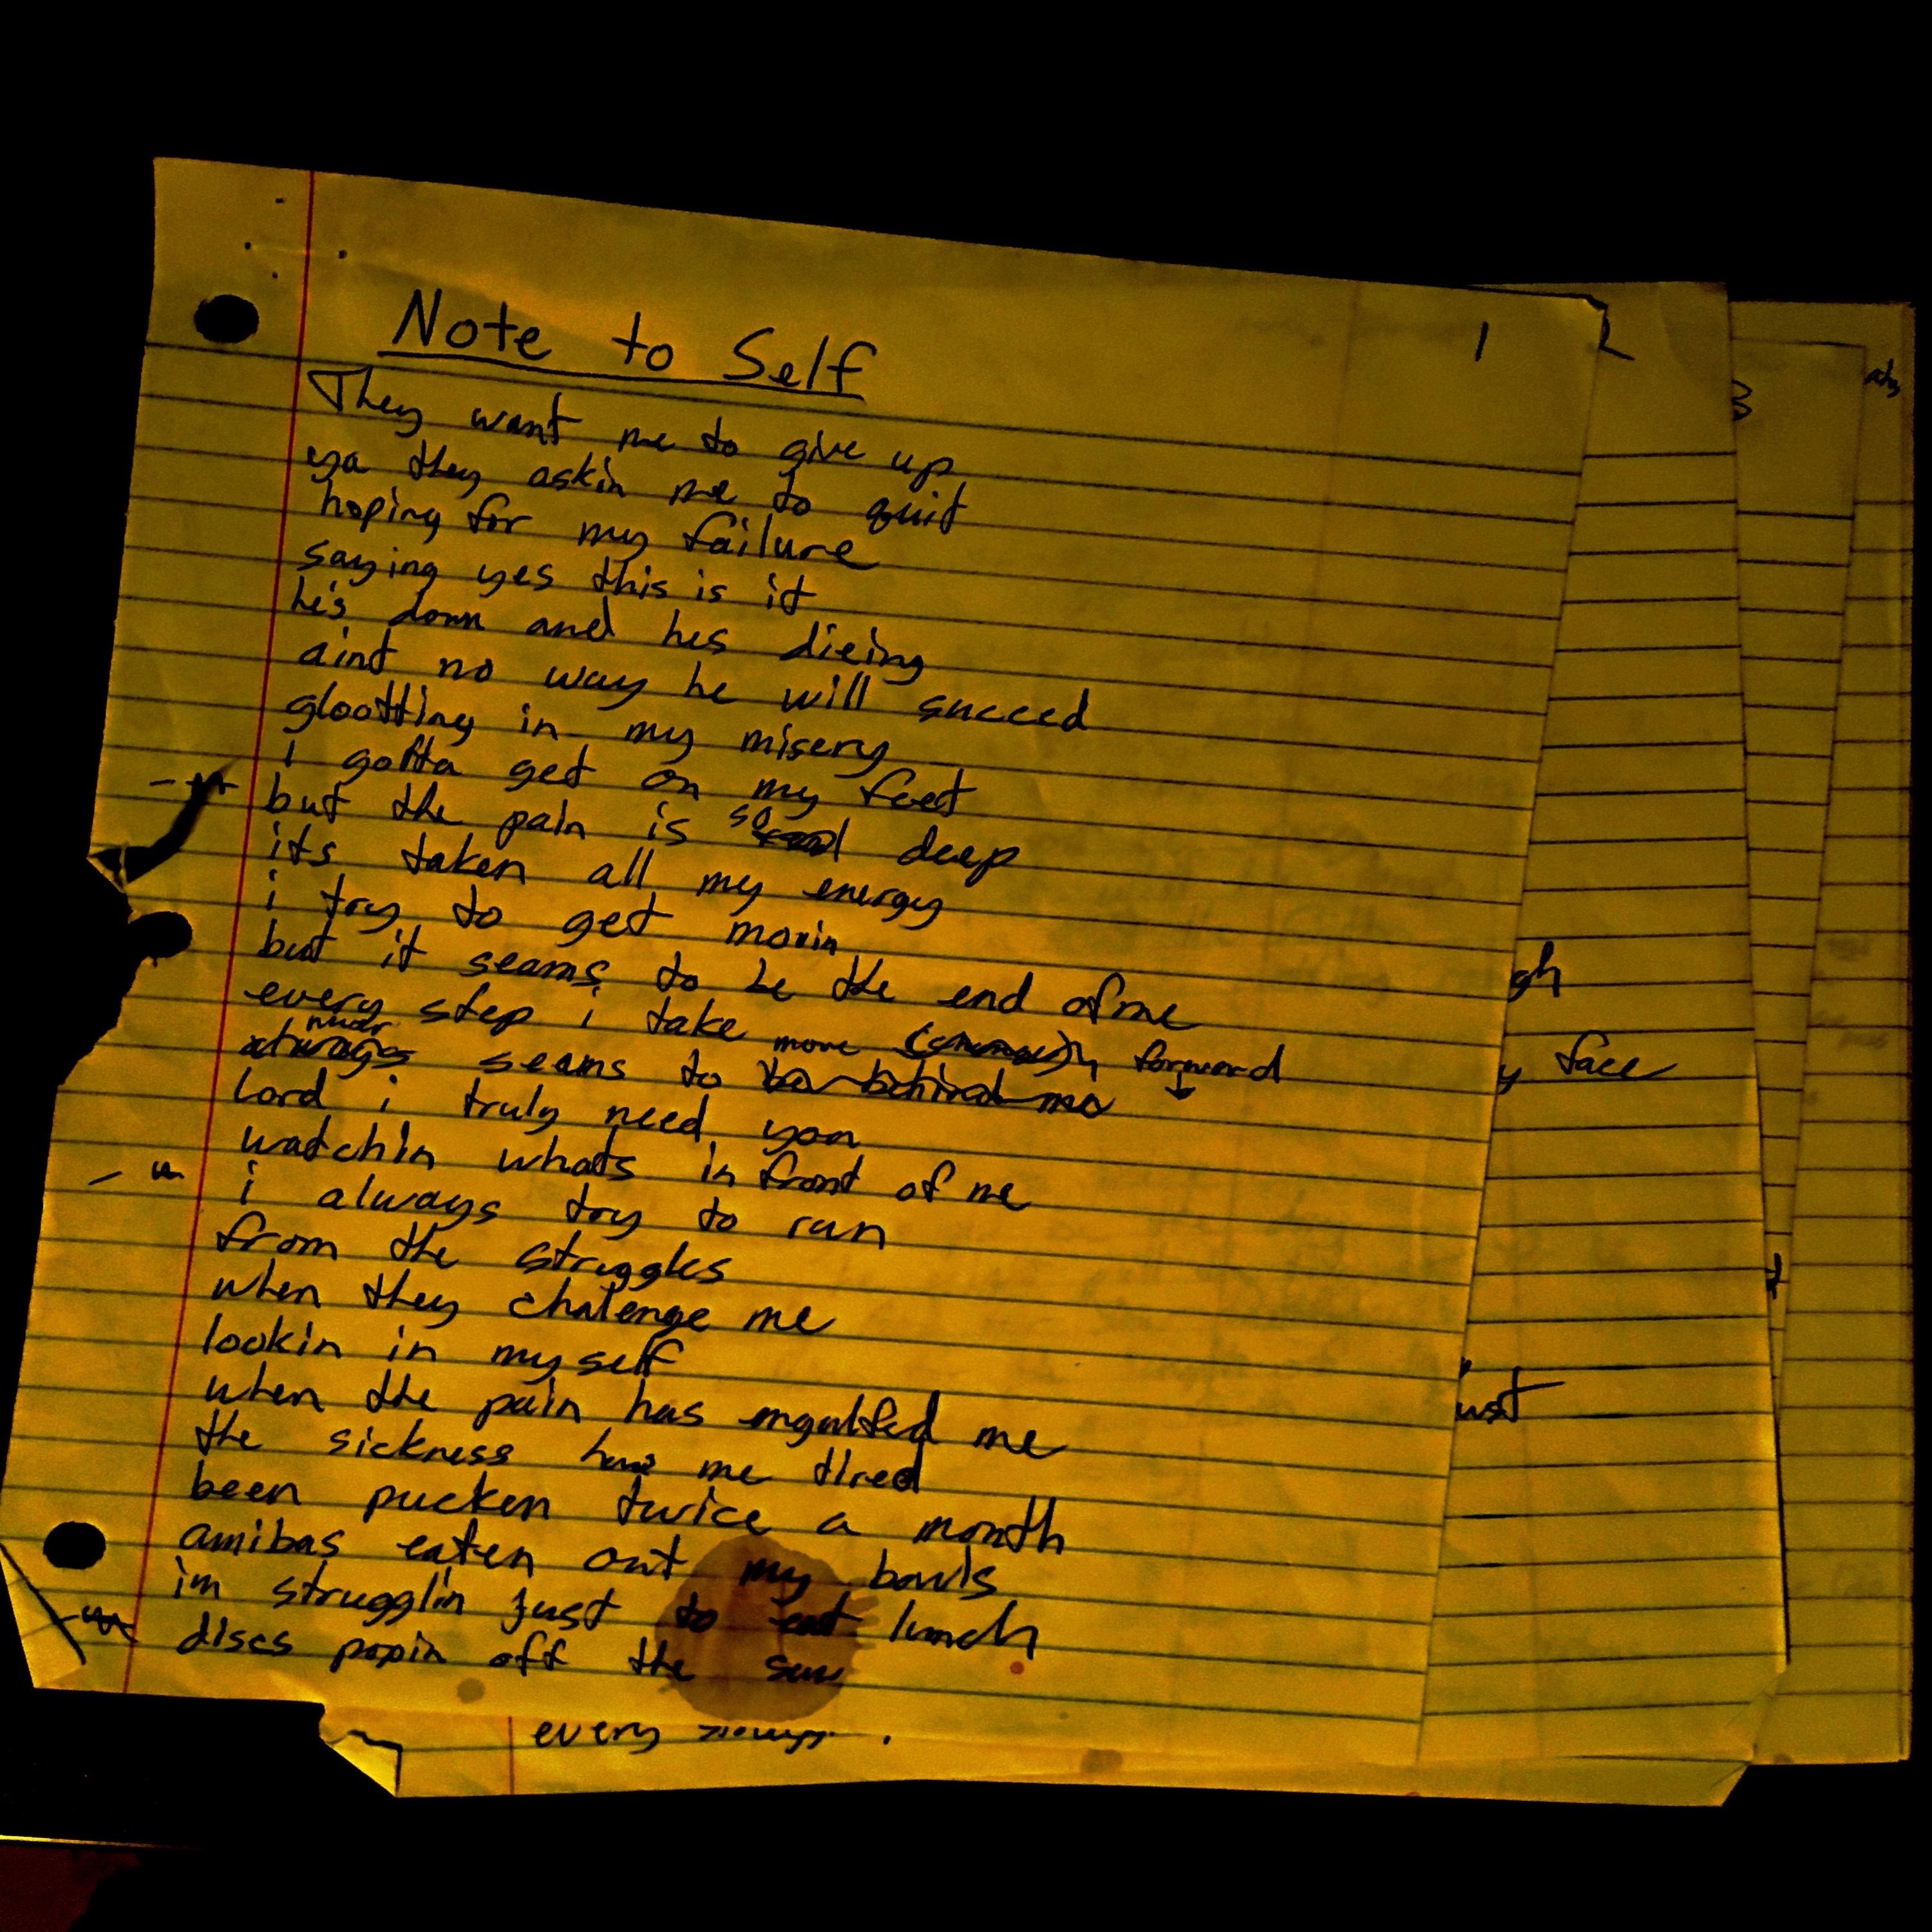 Note to Self
1
2
3
They want me to give up
ya they askin me to quit
hoping for my failure
saying yes this is it
he's down and hes dieing
aint no way he will succed
glootting in my misery
I gotta get on my feet
but the pain is so deep
its taken all my energy
i try to get movin
but it seams to be the end of me
every step i take move forward
never seams to be behind me
Lord i truly need you
watchin whats in front of me
i always try to run
from the struggles
when they chalenge me
lookin in my self
when the pain has engulfed me
the sickness has me tired
been pucken twice a month
amibas eaten out my bowls
im strugglin just to eat lunch
discs popin off the
every
gh
y face
ust